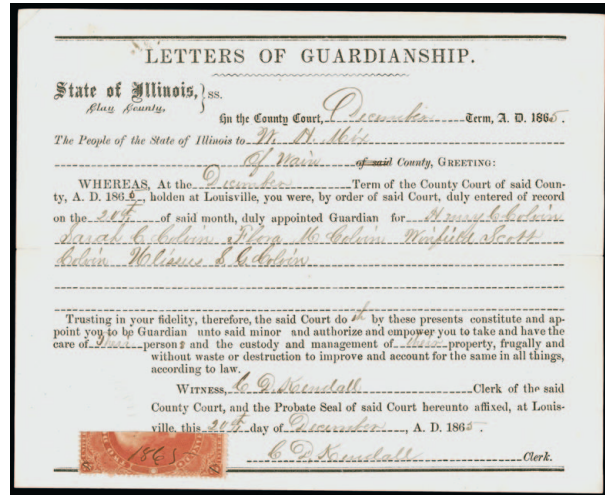 LETTERS OF GUARDIANSHIP.
State of Illinois, } ss.
Clay County,
In the County Court, December Term, A. D. 1865.
The People of the State of Illinois to W. H. Mix
Of Wain of said County, GREETING:
WHEREAS, At the December Term of the County Court of said Coun-
ty, A. D. 1865, holden at Louisville, you were, by order of said Court, duly entered of record
on the 20th of said month, duly appointed Guardian for Henry C Colvin
Sarah C Colvin Flora M Colvin Winfield Scott
Colvin Ulissus S. G. Colvin
Trusting in your fidelity, therefore, the said Court do th by these presents constitute and ap-
point you to be Guardian unto said minor and authorize and empower you to take and have the
care of their persons and the custody and management of their property, frugally and
without waste or destruction to improve and account for the same in all things,
according to law.
WITNESS, C D. Kendall Clerk of the said
County Court, and the Probate Seal of said Court hereunto affixed, at Louis-
ville, this 20th day of December, A. D. 1865.
1865
C D. Kendall Clerk.